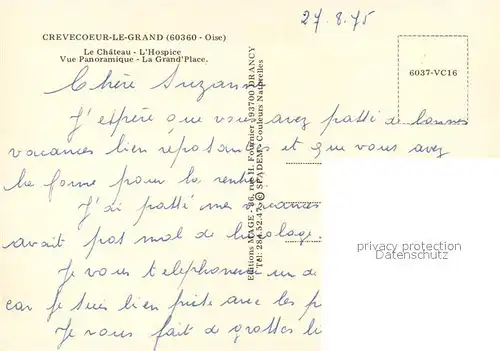 27.8.75
CREVECOEUR-LE-GRAND (60360 - Oise)
Le Château - L'Hospice
Vue Panoramique - La Grand'Place.
6037-VC16
Chère Suzanne
J'espère que vous avez passé de bonnes
vacances bien reposantes et que vous avez
la forme pour la rentrée.
J'ai passé mes vacances
avait pas mal de bricolage.
Je vous telephonerai un de
car je suis bien prise avec les p
Je vous fait de grosses bi
Editions MAGE - 86, rue H. Fournier - 93700 DRANCY
Tél: 284.52.47 - © SPADEM - Couleurs Naturelles
privacy protection
Datenschutz